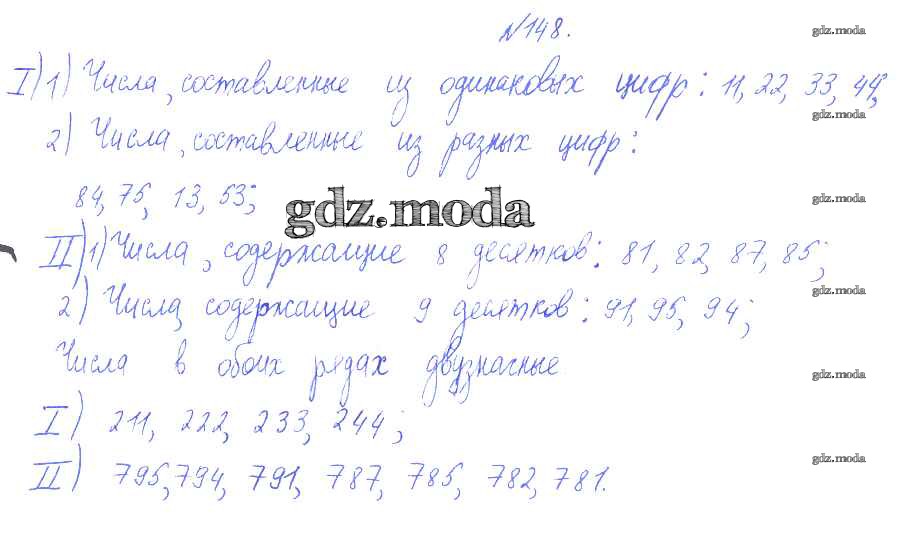 №148.
gdz.moda
I) 1) Числа, составленные из одинаковых цифр: 11, 22, 33, 44;
gdz.moda
2) Числа, составленные из разных цифр:
84, 75, 13, 53;
gdz.moda
gdz.moda
II) 1) Числа, содержащие 8 десятков: 81, 82, 87, 85;
gdz.moda
2) Числа, содержащие 9 десятков: 91, 95, 94;
Числа в обоих рядах двузначные
gdz.moda
I) 211, 222, 233, 244;
gdz.moda
II) 795, 794, 791, 787, 785, 782, 781.
gdz.moda